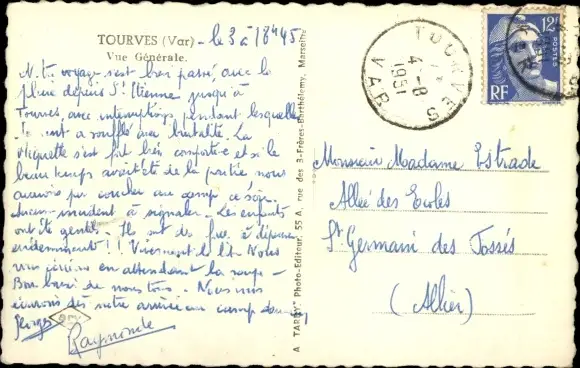 TOURVES (Var) - le 3 à 18h45
Vue Générale.
N. tr. voyage s'est bien passé, avec la
pluie depuis St Etienne jusqu'à
Tourves, avec interruptions pendant lesquelles
le vent a soufflé avec brutalité. La
s'est fort bien comportée et si le
beau temps avait été de la partie nous
aurions pu coucher au camp ce soir.
Aucun incident à signaler - Les enfants
ont été gentils. Ils ont des à dépenser
évidemment !! Vivement le lit. Nous
vous écrivons en attendant la soupe -
Bons baisers de nous tous - Nous vous
écrirons dès notre arrivée au camp
Georges
Raymonde
A TARDY Photo-Editeur, 55 A, rue des 3-Frères-Barthélemy, Marseille
TOURVES
4-8
1951
VAR
12F
POSTES
RF
Monsieur Madame Estrade
Allée des Ecoles
St Germain des Fossés
(Allier)